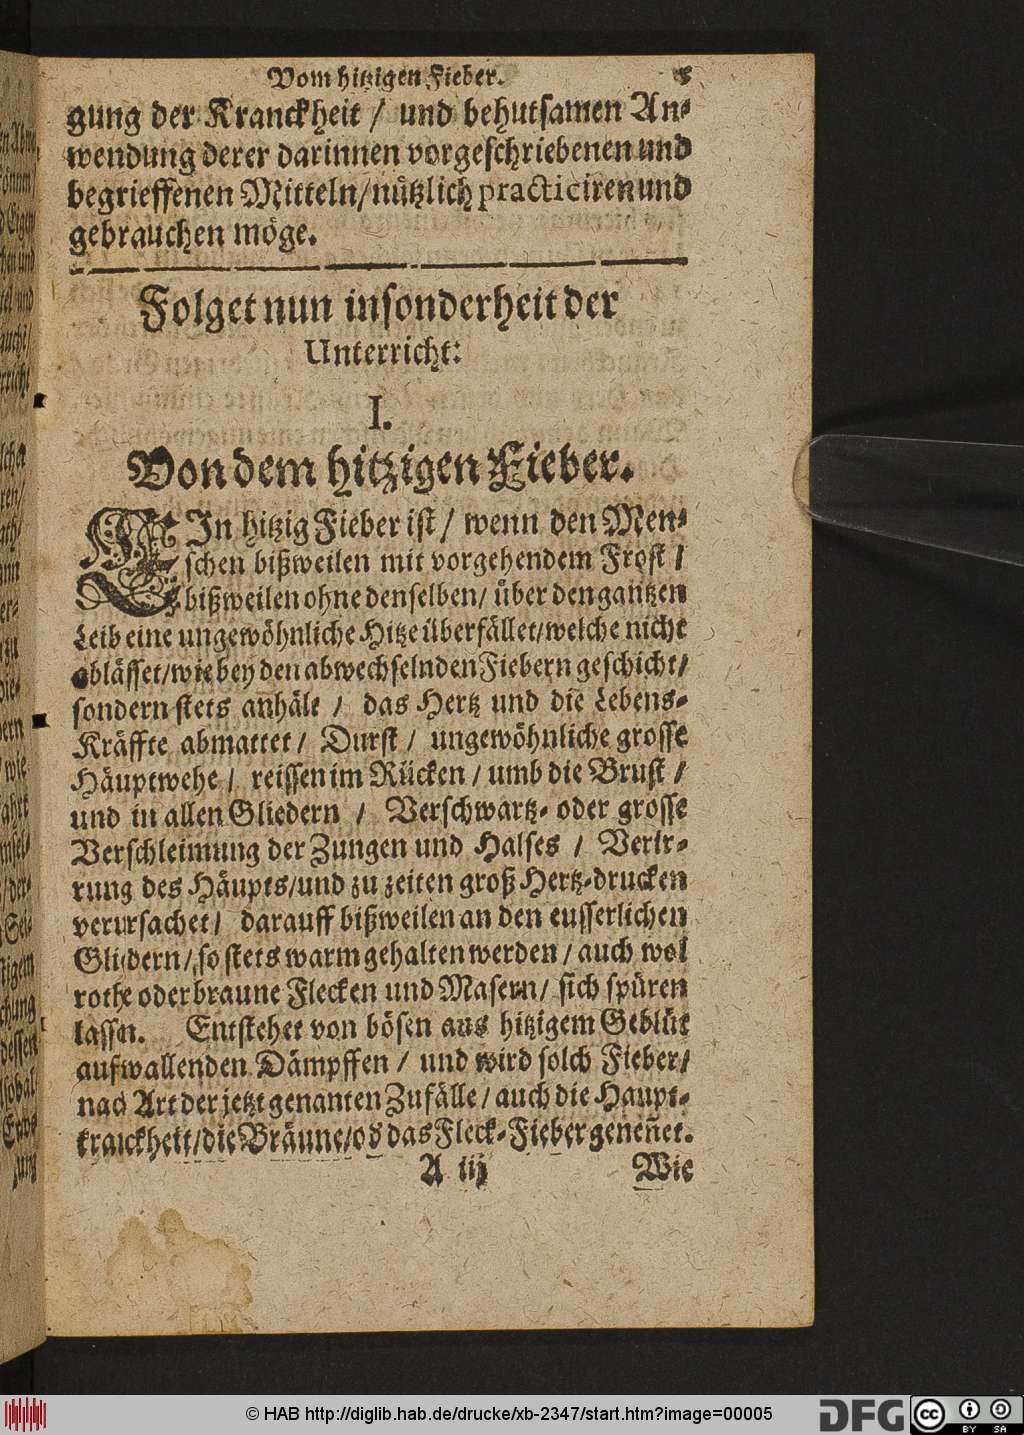 Vom hitzigen Fieber. 5
gung der Kranckheit / und behutsamen An-
wendung derer darinnen vorgeschriebenen und
begrieffenen Mitteln/nützlich practiciren und
gebrauchen möge.
Folget nun insonderheit der
Unterricht:
I.
Von dem hitzigen Fieber.
EIn hitzig Fieber ist / wenn den Men-
schen bißweilen mit vorgehendem Frost /
bißweilen ohne denselben/ über den gantzen
Leib eine ungewöhnliche Hitze überfället/welche nicht
ablässet/wie bey den abwechselnden Fiebern geschicht/
sondern stets anhält / das Hertz und die Lebens-
Kräffte abmattet / Durst / ungewöhnliche grosse
Häuptwehe / reissen im Rücken / umb die Brust /
und in allen Gliedern / Verschwartz- oder grosse
Verschleimung der Zungen und Halses / Verir-
rung des Häupts/und zu zeiten groß Hertz-drucken
verursachet / darauff bißweilen an den eusserlichen
Glidern/ so stets warm gehalten werden / auch wol
rothe oder braune Flecken und Masern/ sich spüren
lassen. Entstehet von bösen aus hitzigem Geblüt
aufwallenden Dämpffen / und wird solch Fieber/
nach Art der jetzt genanten Zufälle / auch die Haupt-
kranckheit/die Bräune/oď das Fleck-Fieber geneñet.
A iij Wie
© HAB http://diglib.hab.de/drucke/xb-2347/start.htm?image=00005
DFG
cc BY SA